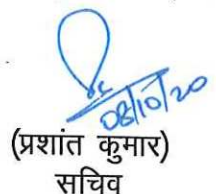 08/10/20
(प्रशांत कुमार)
सचिव